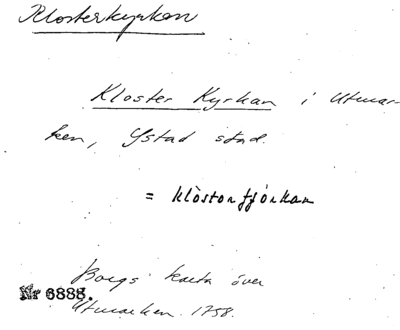 Klosterkyrkan
Kloster Kyrkan i Utmar-
ken, Ystad stad.
= klòstorfjórkan
Borgs karta över
Nr 6888.
Utmarken 1758.